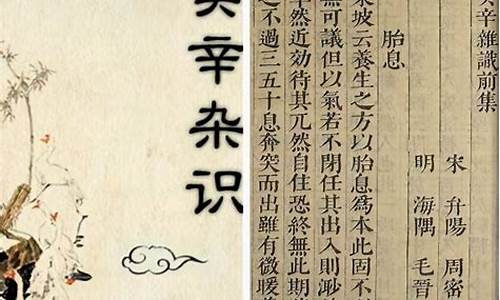 癸辛杂识
癸辛雜識前集
宋 弁陽 周密
明 海隅 毛晉
胎息
東坡云養生之方以胎息爲本此固不
無可議但以氣若不閉任其出入則渺
卒然近効待其兀然自住恐終無此期
之不過三五十息奔突而出雖有微暖